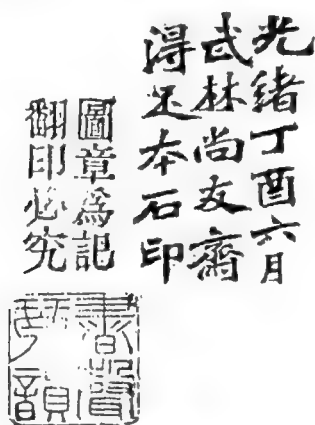 光緒丁酉六月
武林尚友齋
得足本石印
圖章為記
翻印必究